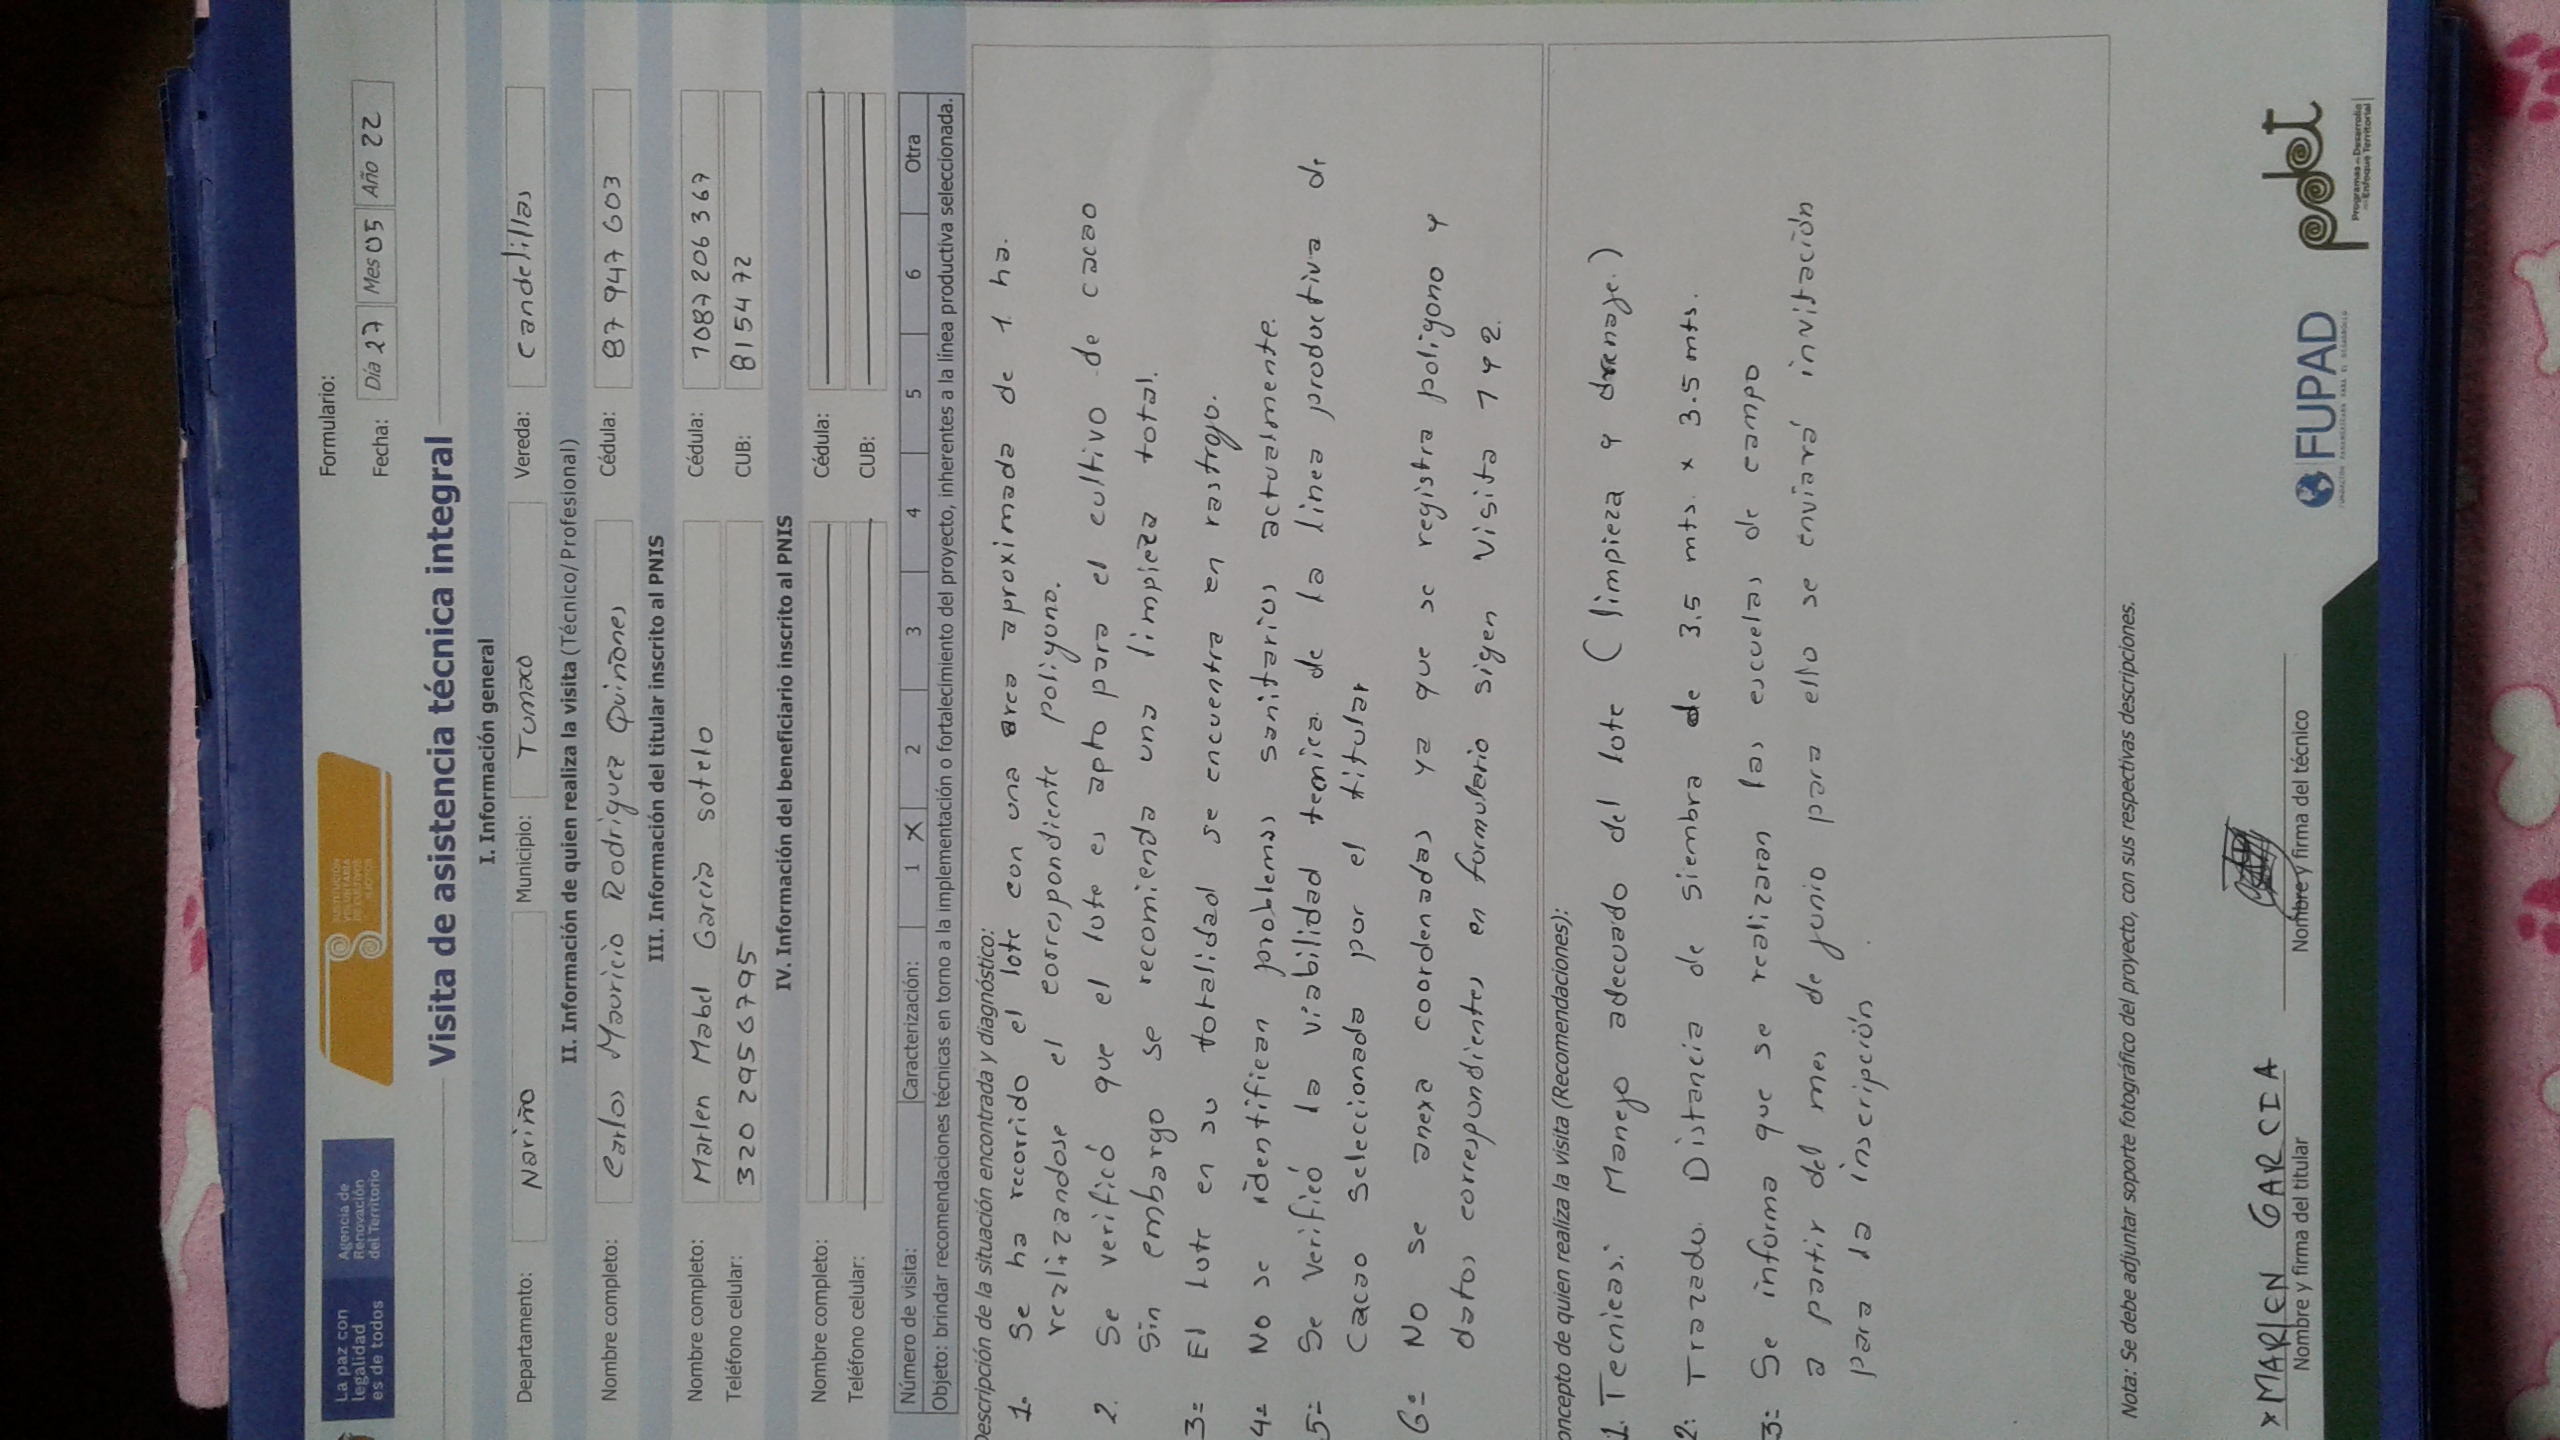 La paz con
legalidad
es de todos
Agencia de
Renovación
del Territorio
SUSTITUCIÓN
VOLUNTARIA
DE CULTIVOS
ILÍCITOS
Formulario:
Fecha: Día 27 Mes 05 Año 22
Visita de asistencia técnica integral
I. Información general
Departamento: Nariño Municipio: Tumaco Vereda: Candelillas
II. Información de quien realiza la visita (Técnico/Profesional)
Nombre completo: Carlos Mauricio Rodriguez Quiñones Cédula: 87 947 603
III. Información del titular inscrito al PNIS
Nombre completo: Marlen Mabel Garcia sotelo Cédula: 1087 206 367
Teléfono celular: 320 295 6795 CUB: 8154 72
IV. Información del beneficiario inscrito al PNIS
Nombre completo: Cédula:
Teléfono celular: CUB:
Número de visita: Caracterización: 1 X 2 3 4 5 6 Otra
Objeto: brindar recomendaciones técnicas en torno a la implementación o fortalecimiento del proyecto, inherentes a la línea productiva seleccionada.
Descripción de la situación encontrada y diagnóstico:
1= Se ha recorrido el lote con una area aproximada de 1 ha.
realizandose el correspondiente poligono.
2. Se verificó que el lote es apto para el cultivo de cacao
Sin embargo se recomienda una limpieza total.
3= El lote en su totalidad se encuentra en rastrojo.
4= No se identifican problemas sanitarios actualmente.
5= Se verificó la viabilidad tecnica de la linea productiva de
Cacao Seleccionada por el titular
6= No se anexa coordenadas ya que se registra poligono y
datos correspondientes en formulario sigen Visita 1 y 2.
oncepto de quien realiza la visita (Recomendaciones):
1. Tecnicas: Manejo adecuado del lote (limpieza y drenaje.)
2: Trazado. Distancia de siembra de 3.5 mts. x 3.5 mts.
3= Se informa que se realizaran las escuelas de campo
a partir del mes de junio para ello se enviará invitación
para la inscripción
Nota: Se debe adjuntar soporte fotográfico del proyecto, con sus respectivas descripciones.
x MARLEN GARCIA
Nombre y firma del titular
Nombre y firma del técnico
FUPAD
FUNDACIÓN PANAMERICANA PARA EL DESARROLLO
pdet
Programas de Desarrollo
con Enfoque Territorial